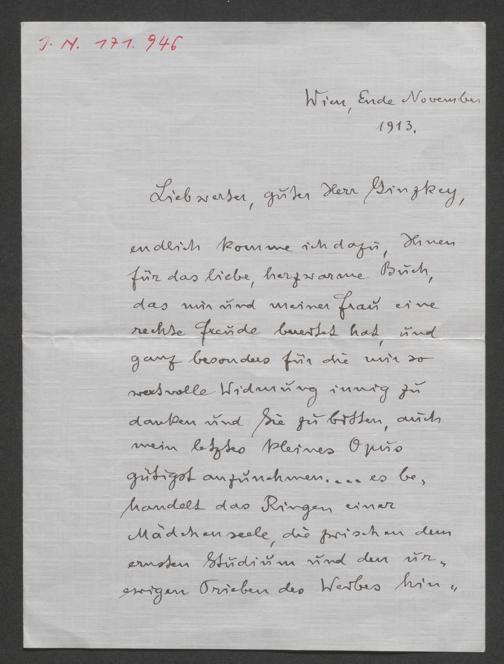 J. N. 171.946
Wien, Ende November
1913.
Liebwerter, guter Herr Ginzkey,
endlich komme ich dazu, Ihnen
für das liebe, herzwarme Buch,
das mir und meiner Frau eine
rechte Freude bereitet hat, und
ganz besonders für die mir so
wertvolle Widmung innig zu
danken und Sie zu bitten, auch
mein letztes kleines Opus
gütigst anzunehmen.... es be„
handelt das Ringen einer
Mädchenseele, die zwischen dem
ernsten Studium und den ur„
ewigen Trieben des Weibes hin„